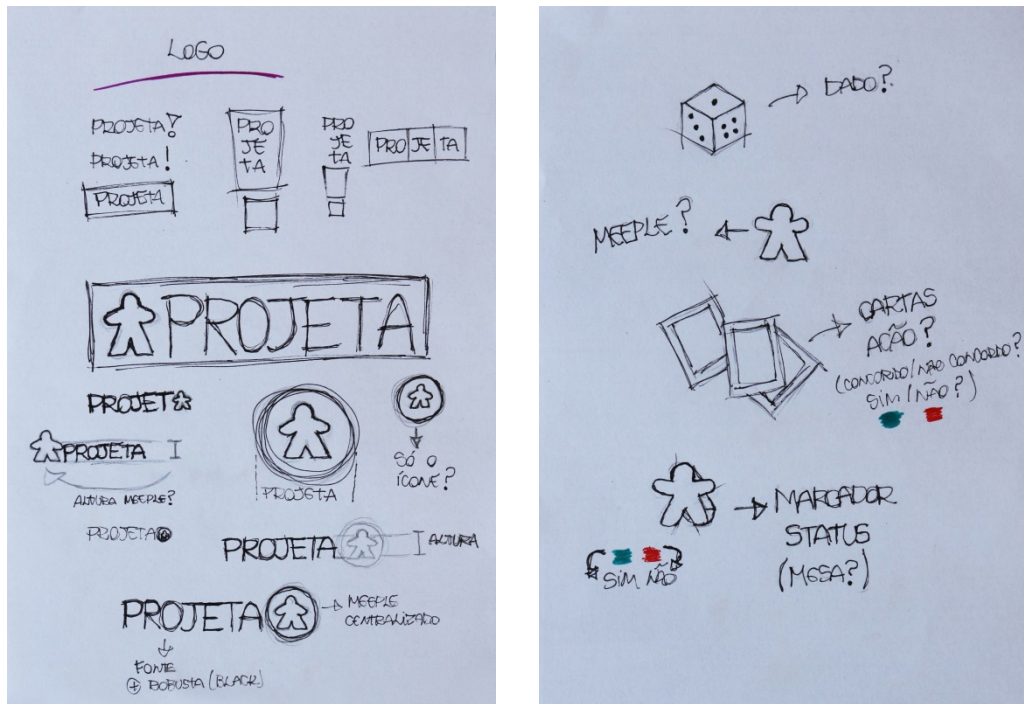 LOGO
PROJETA?
PROJETA!
PROJETA
PRO
JE
TA
PRO
JE
TA
PRO JE TA
PROJETA
PROJET
PROJETA
ALTURA MEEPLE?
PROJETA
PROJETA
SÓ O
ÍCONE?
PROJETA
ALTURA
PROJETA
MEEPLE
CENTRALIZADO
FONTE
+ ROBUSTA (BLACK)
DADO?
MEEPLE?
CARTAS
AÇÃO?
(CONCORDO/NÃO CONCORDO?
SIM/NÃO?)
MARCADOR
STATUS
(MESA?)
SIM NÃO